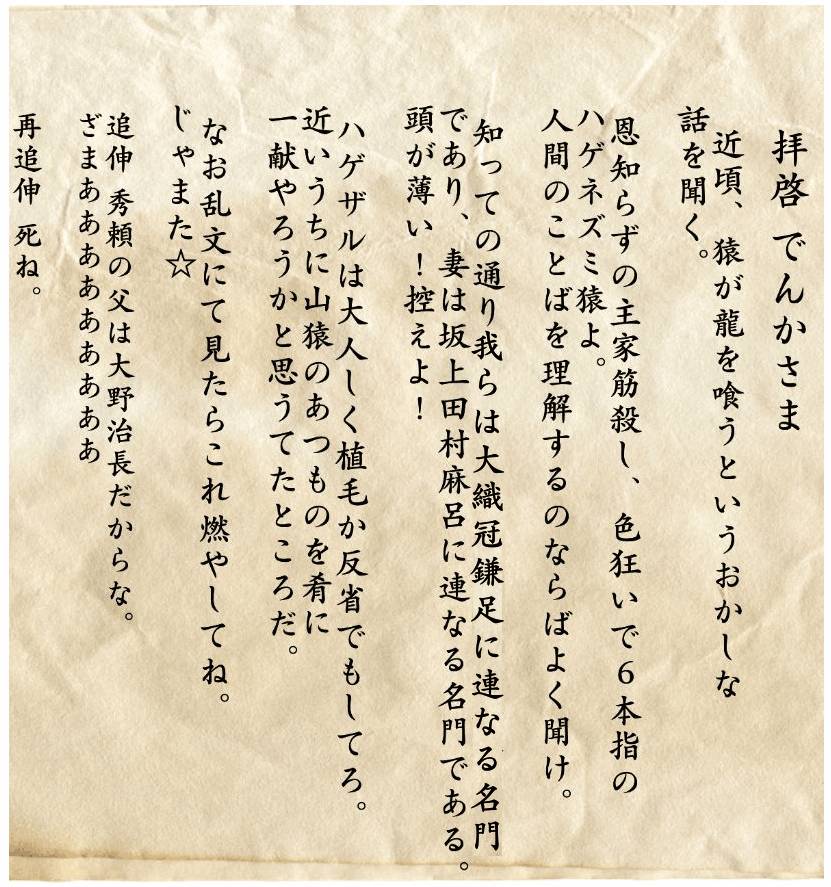 拝啓 でんかさま
近頃、猿が龍を喰うというおかしな
話を聞く。
恩知らずの主家筋殺し、色狂いで６本指の
ハゲネズミ猿よ。
人間のことばを理解するのならばよく聞け。
知っての通り我らは大織冠鎌足に連なる名門
であり、妻は坂上田村麻呂に連なる名門である。
頭が薄い！控えよ！
ハゲザルは大人しく植毛か反省でもしてろ。
近いうちに山猿のあつものを肴に
一献やろうかと思うてたところだ。
なお乱文にて見たらこれ燃やしてね。
じゃまた☆
追伸 秀頼の父は大野治長だからな。
ざまあああああああああ
再追伸 死ね。